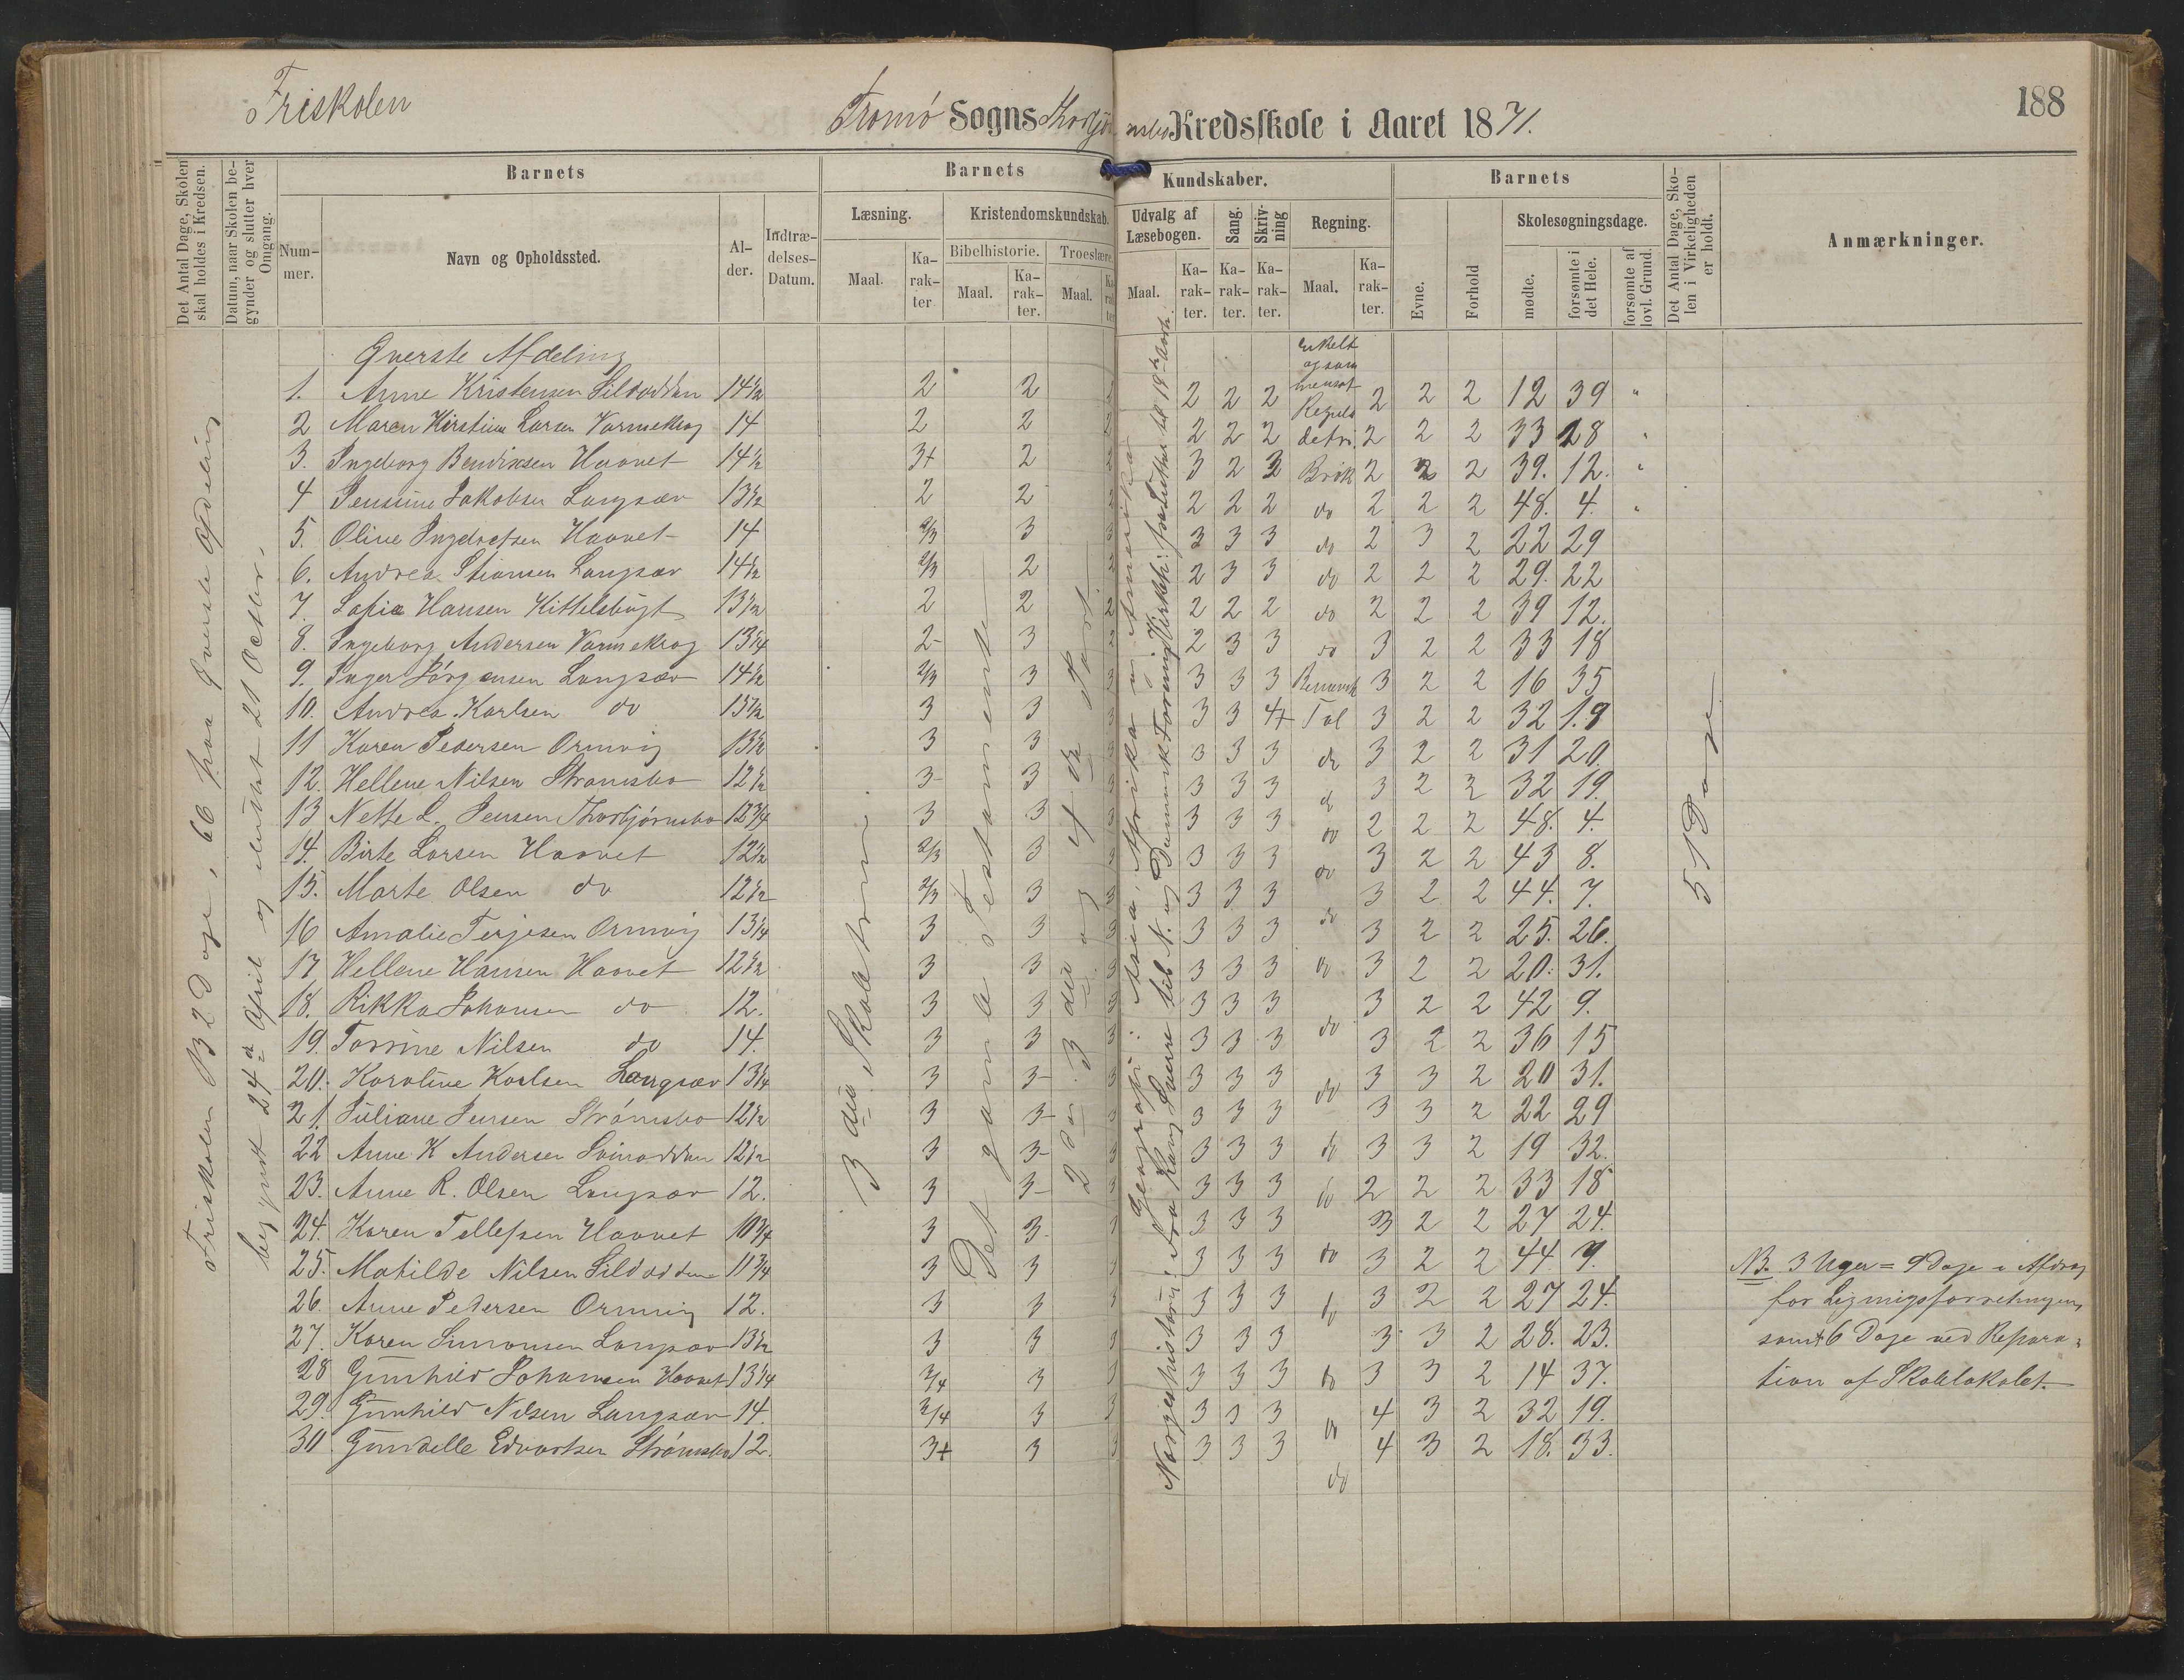 Friskolen
Tromø Sogns Thorbjørnsbo Kredsskole i Aaret 1871.
188
Det Antal Dage, Skolen skal holdes i Kredsen.
Datum, naar Skolen begynder og slutter hver Omgang.
Barnets
Nummer.
Navn og Opholdssted.
Alder.
Indtrædelses-Datum.
Barnets Kundskaber.
Læsning.
Maal.
Karakter
Kristendomskundskab.
Bibelhistorie.
Maal.
Karakter.
Troeslære.
Maal.
Udvalg af Læsebogen.
Maal.
Karakter.
Sang.
Karakter.
Skrivning
Karakter.
Regning.
Maal.
Karakter.
Barnets
Evne.
Forhold
Skolesøgningsdage.
mødte.
forsømte i det Hele.
forsømte af lovl. Grund.
Det Antal Dage, Skolen i Virkeligheden er holdt.
Anmærkninger.
Friskolen 132 Dage, 66 paa øverste Afdeling
begyndt 24de April og sluttet 21 Octbr.
3die Skoletrin.
Det gamle Testamente
2den 3die og 4de Part.
Geografi: Asia, Afrika og Amerika
Norgeshistorie: Fra Kong Sverre til N. og Danmarks Forening
51 Dage
Øverste Afdeling
1. Anne Kristensen Sildodden 14½ 2 2 2 2 2 2 2 2 12 39 "
2 Maren Kirstine Larsen Varmekrog 14 2 2 2 2 2 2 2 2 33 18
3. Ingeborg Bendixsen Havnet 14½ 3+ 2 3 2 2 Brøk 2 2 2 39. 12.
4 Jenssine Jakobsen Langsæv 13½ 2 2 2 2 2 do 2 2 2 48. 4.
5. Oline Ingebretsen Havnet 14 2/3 3 3 3 3 do 2 3 2 22 29
6. Andrea Stiansen Langsæv 14½ 2/3 2 2 3 3 do 2 2 2 29. 22
7. Sofie Hansen Kittelsbugt 13½ 2 2 2 2 2 do 2 2 2 39 12.
8. Ingeborg Andersen Varmekrog 13¼ 2- 3 2 3 3 do 3 2 2 33 18
9. Inger Jörgensen Langsæv 14½ 2/3 3 3 3 3 Benævnt 3 2 2 16 35
10. Andrea Karlsen do 15½ 3 3 3 3 4+ Tal 3 2 2 32 19
11 Karen Pedersen Ormvig 13½ 3 3 3 3 3 do 3 2 2 31 20.
12. Hellene Nilsen Strømsbo 12½ 3- 3 3 3 3 do 3 2 2 32 19.
13 Nette L. Jensen Thorbjørnsbo 12¾ 3 3 3 3 3 do 2 2 2 48. 4.
14. Birte Larsen Havnet 12½ 2/3 3 3 3 3 do 3 2 2 43 8.
15. Marte Olsen do 12½ 2/3 3 3 3 3 3 2 2 44. 7.
16 Amalie Terjesen Ormvig 13¼ 3 3 3 3 3 do 3 2 2 25. 26.
17 Hellene Hansen Havnet 12½ 3 3 3 3 3 do 3 2 2 20. 31.
18. Rikka Johansen do 12. 3 3 3 3 3 3 2 2 42 9.
19. Torrine Nilsen do 14. 3 3 3 3 3 do 3 2 2 36 15
20. Karoline Karlsen Langsæv 13¼ 3 3- 3 3 3 do 3 3 2 20 31.
21. Juliane Jensen Strömsbo 12½ 3 3- 3 3 3 3 3 2 22 29
22 Anne K Andersen Svinodden 12½ 3 3- 3 3 3 do 3 3 2 19 32.
23. Anne R. Olsen Langsæv 12. 3 3- 3 3 3 do 2 2 2 33 18
24. Karen Tellefsen Havnet 10¾ 3 3. 3 3 3 3 2 2 27 24.
25. Matilde Nilsen Sildodden 11¾ 3 3 3 3 3 do 3 2 2 44 7.
26. Anne Petersen Ormvig 12. 3 3 3 3 3 do 3 2 2 27 24.
27. Karen Simonsen Langsæv 13½ 3 3 3 3 3 3 3 2 28. 23.
28 Gunhild Johansen Havnet 13¼ 3/4 3 3 3 3 do 3 3 2 14 37.
29. Gunhild Nilsen Langsæv 14. 3/4 3 3 3 3 do 4 3 2 32 19.
30 Gundelle Edvartsen Strömsbo 12. 3+ 3 3 3 3 do 4 3 2 18. 33.
NB. 3 Uger = 9 Dage i Afdrag
for Ligningsforretningen,
samt 6 Dage ved Repara-
tion af Skolelokalet.